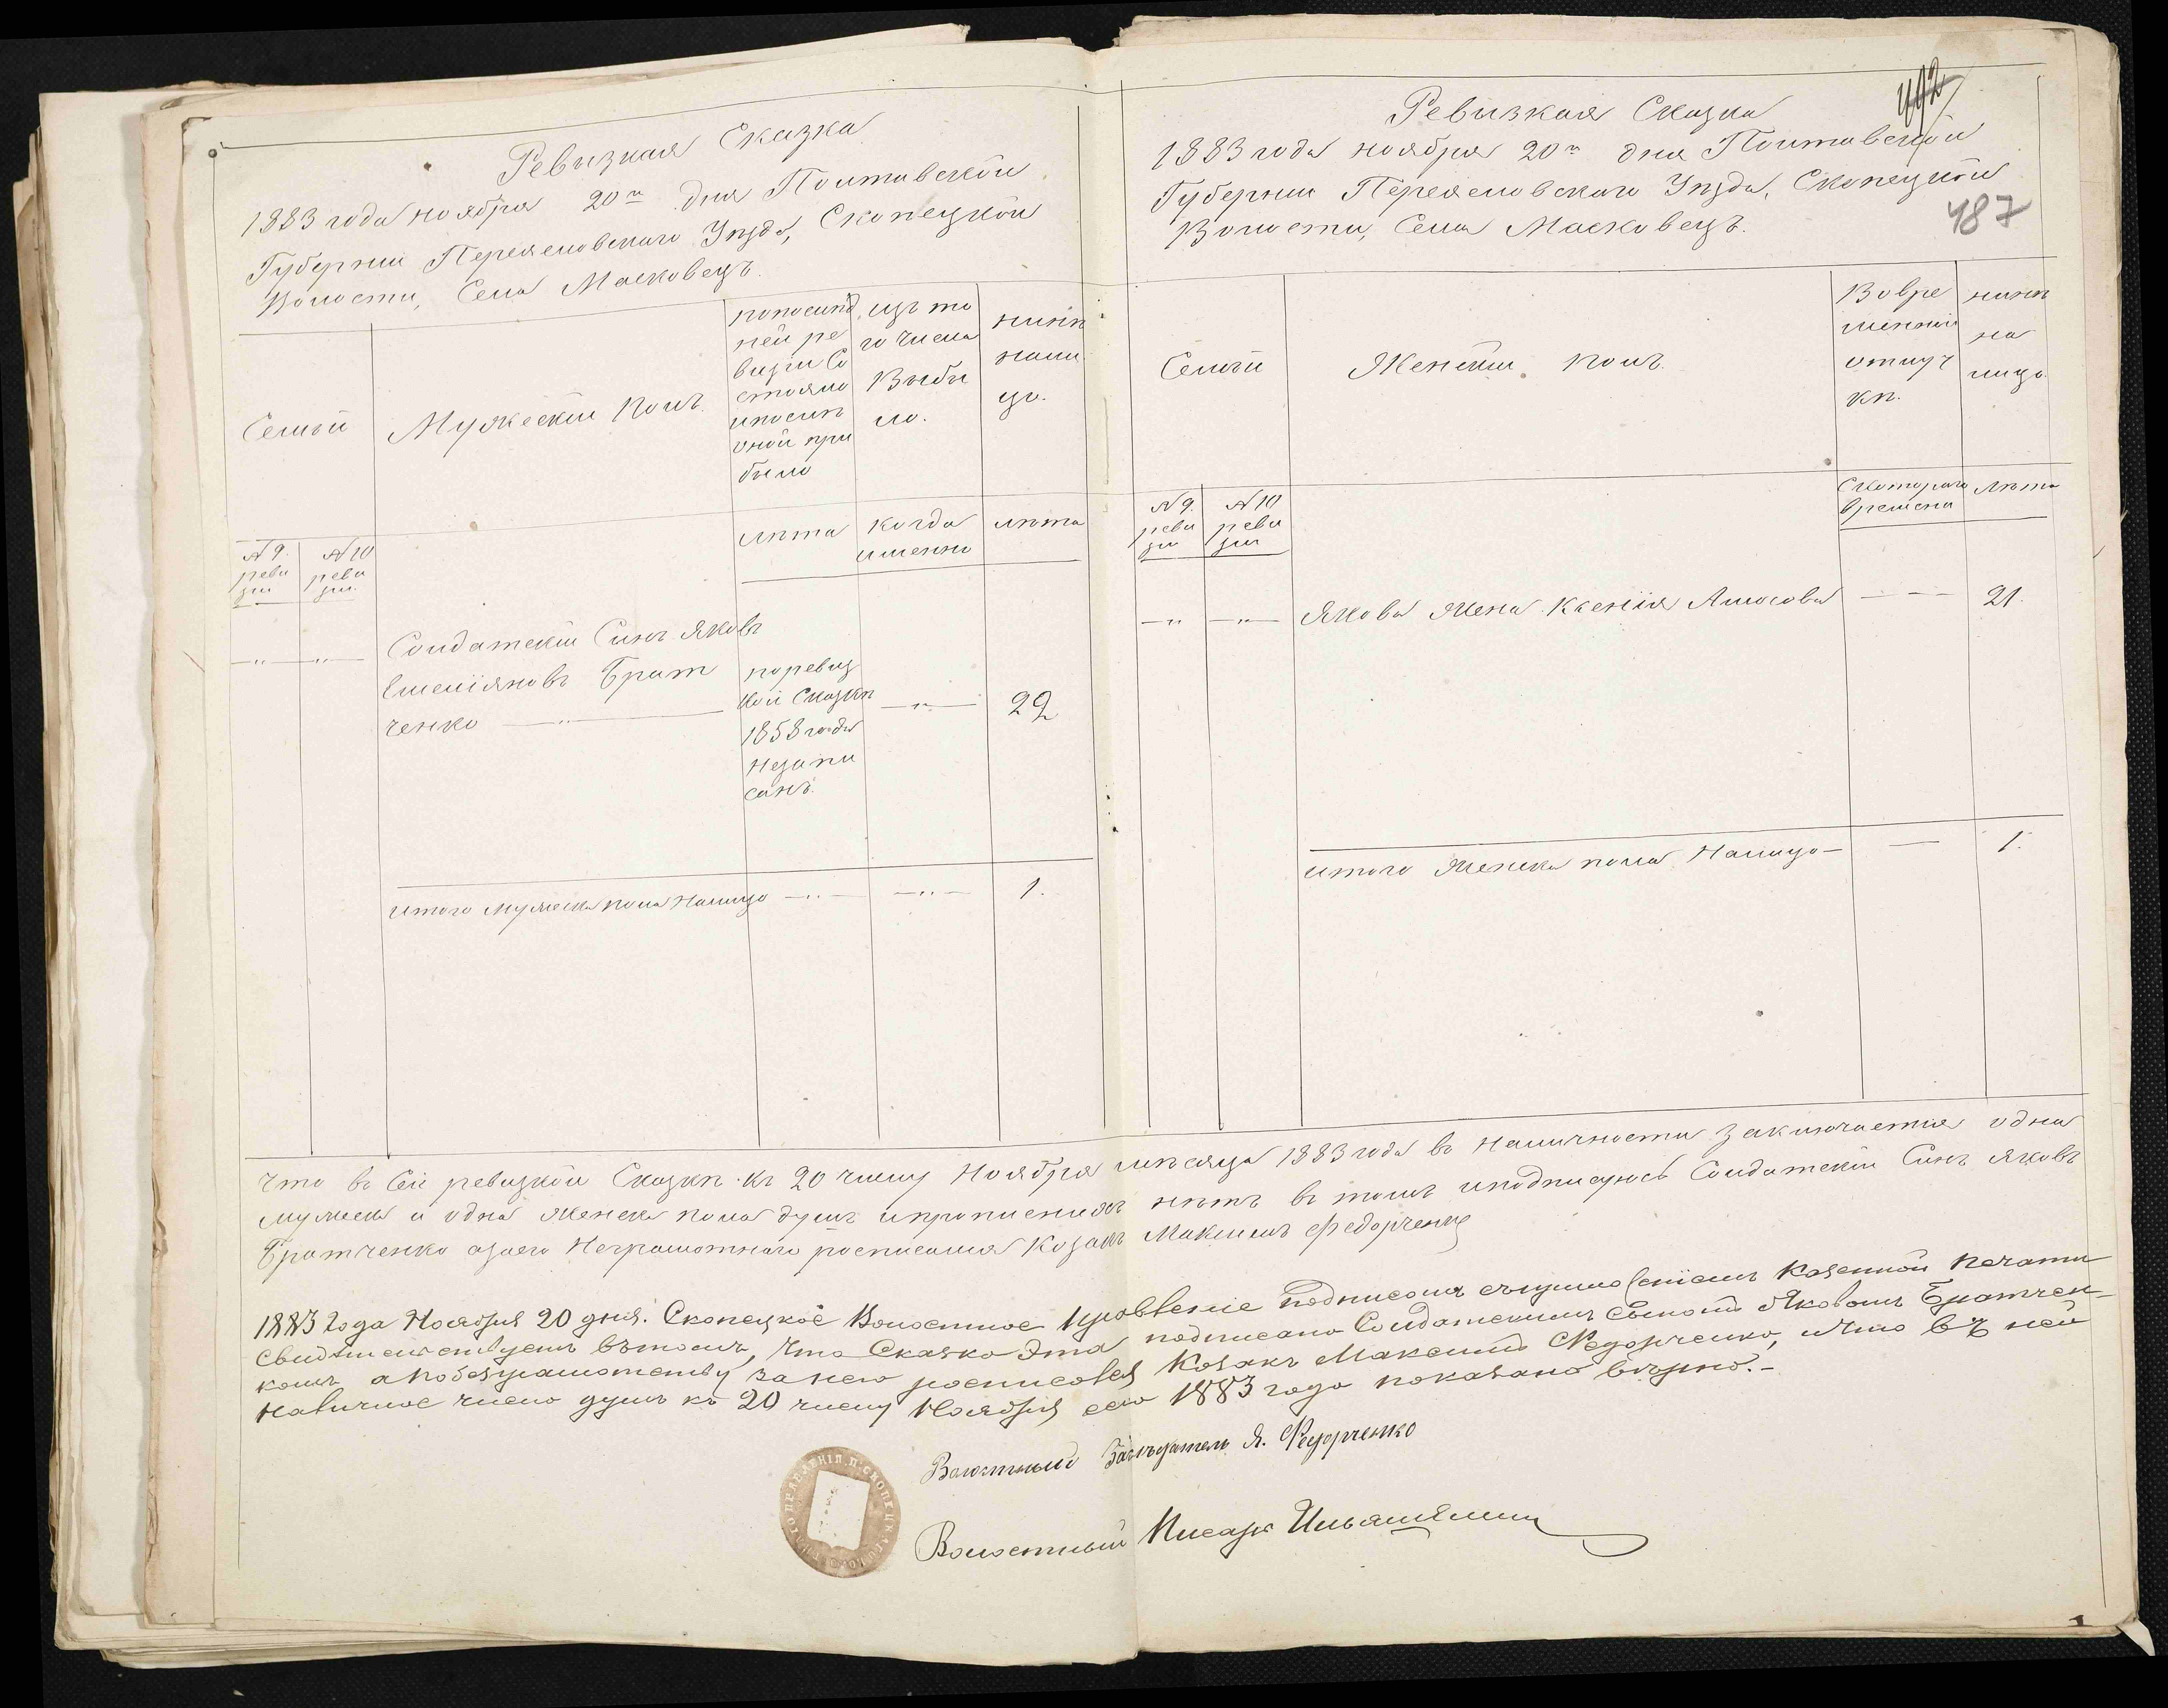 Ревизкая Сказка
1883 года ноября 20го дня Полтавской
Губернии Переяславскаго Уѣзда, Скопецкой
Волости, Села Масковецъ.
Семьи
Мужескій полъ.
попослѣд
ней ре
визіи Со
стояло
ипослѣ
оной при
было
изъ то
го числа
Выбы
ло.
нынѣ
нали
цо.
№ 9.
реви
зіи
№ 10
реви
зіи.
лѣта
когда
именно
лѣта
Солдатскій Сынъ Яковъ
Емеліяновъ Брат
ченко
поревиз
кой Сказкѣ
1858 года
незапи
санъ.
22
итого мужеска пола налицо
1.
492
Ревизкая Сказка
1883 года ноября 20го дня Полтавской
Губернии Переяславскаго Уѣзда, Скопецкой
Волости, Села Масковецъ.
487
Семьи
Женскій полъ.
Вовре
менной
отлуч
кѣ.
нынѣ
на
лицо.
№ 9.
реви
зіи
№ 10
реви
зіи
Скотораго
времени
лѣта
Якова жена Ксенія Амосова
21.
итого женска пола налицо
1.
Что въ Сей ревизкой Сказкѣ къ 20 числу Ноября мѣсяца 1883 года въ наличности заключается одна
мужеска и одна женска пола душъ ипрописныхъ нѣтъ въ томъ иподписуюсь Солдатскій Сынъ Яковъ
Братченко азаего Неграмотнаго росписался Козакъ Максимъ Федорченко
1883 года Ноября 20 дня. Скопецкое Волостное Правленіе подписомъ съприложеніемъ Казенной печати
свидѣтельствуетъ вътомъ, что Сказка Эта подписана Солдатскимъ сыномъ Яковомъ Братчен-
комъ апобезграмотству занего росписался Козакъ Максимъ Федорченко, ичто въ ней
наличное число душъ къ 20 числу Ноября сего 1883 года показано вѣрно.-
Волостный Засѣдатель Я. Федорченко
Волостный Писарь